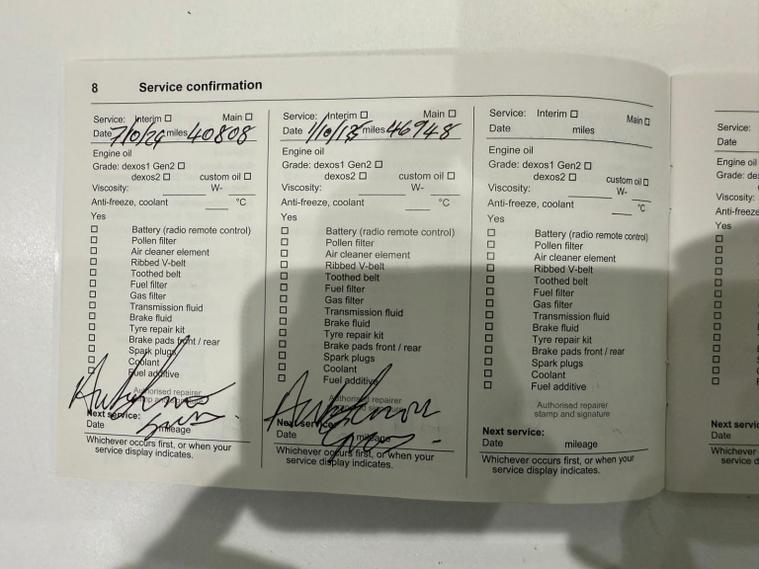 8 Service confirmation
Service: Interim ☐ Main ☐
Date 7/0/24 miles 40808
Engine oil
Grade: dexos1 Gen2 ☐
dexos2 ☐ custom oil ☐
Viscosity: ____ W- ____
Anti-freeze, coolant ____ °C
Yes
☐ Battery (radio remote control)
☐ Pollen filter
☐ Air cleaner element
☐ Ribbed V-belt
☐ Toothed belt
☐ Fuel filter
☐ Gas filter
☐ Transmission fluid
☐ Brake fluid
☐ Tyre repair kit
☐ Brake pads front / rear
☐ Spark plugs
☐ Coolant
☐ Fuel additive
Authorised repairer
stamp and
Next service:
Date mileage
Whichever occurs first, or when your
service display indicates.
Service: Interim ☐ Main ☐
Date miles 46948
Engine oil
Grade: dexos1 Gen2 ☐
dexos2 ☐ custom oil ☐
Viscosity: ____ W- ____
Anti-freeze, coolant ____ °C
Yes
☐ Battery (radio remote control)
☐ Pollen filter
☐ Air cleaner element
☐ Ribbed V-belt
☐ Toothed belt
☐ Fuel filter
☐ Gas filter
☐ Transmission fluid
☐ Brake fluid
☐ Tyre repair kit
☐ Brake pads front / rear
☐ Spark plugs
☐ Coolant
☐ Fuel additive
Authorised repairer
Next service:
Date mileage
Whichever occurs first, or when your
service display indicates.
Service: Interim ☐ Main ☐
Date miles
Engine oil
Grade: dexos1 Gen2 ☐
dexos2 ☐ custom oil ☐
Viscosity: ____ W- ____
Anti-freeze, coolant ____ °C
Yes
☐ Battery (radio remote control)
☐ Pollen filter
☐ Air cleaner element
☐ Ribbed V-belt
☐ Toothed belt
☐ Fuel filter
☐ Gas filter
☐ Transmission fluid
☐ Brake fluid
☐ Tyre repair kit
☐ Brake pads front / rear
☐ Spark plugs
☐ Coolant
☐ Fuel additive
Authorised repairer
stamp and signature
Next service:
Date mileage
Whichever occurs first, or when your
service display indicates.
Service:
Date
Engine oil
Grade:
Viscosity:
Yes
Date